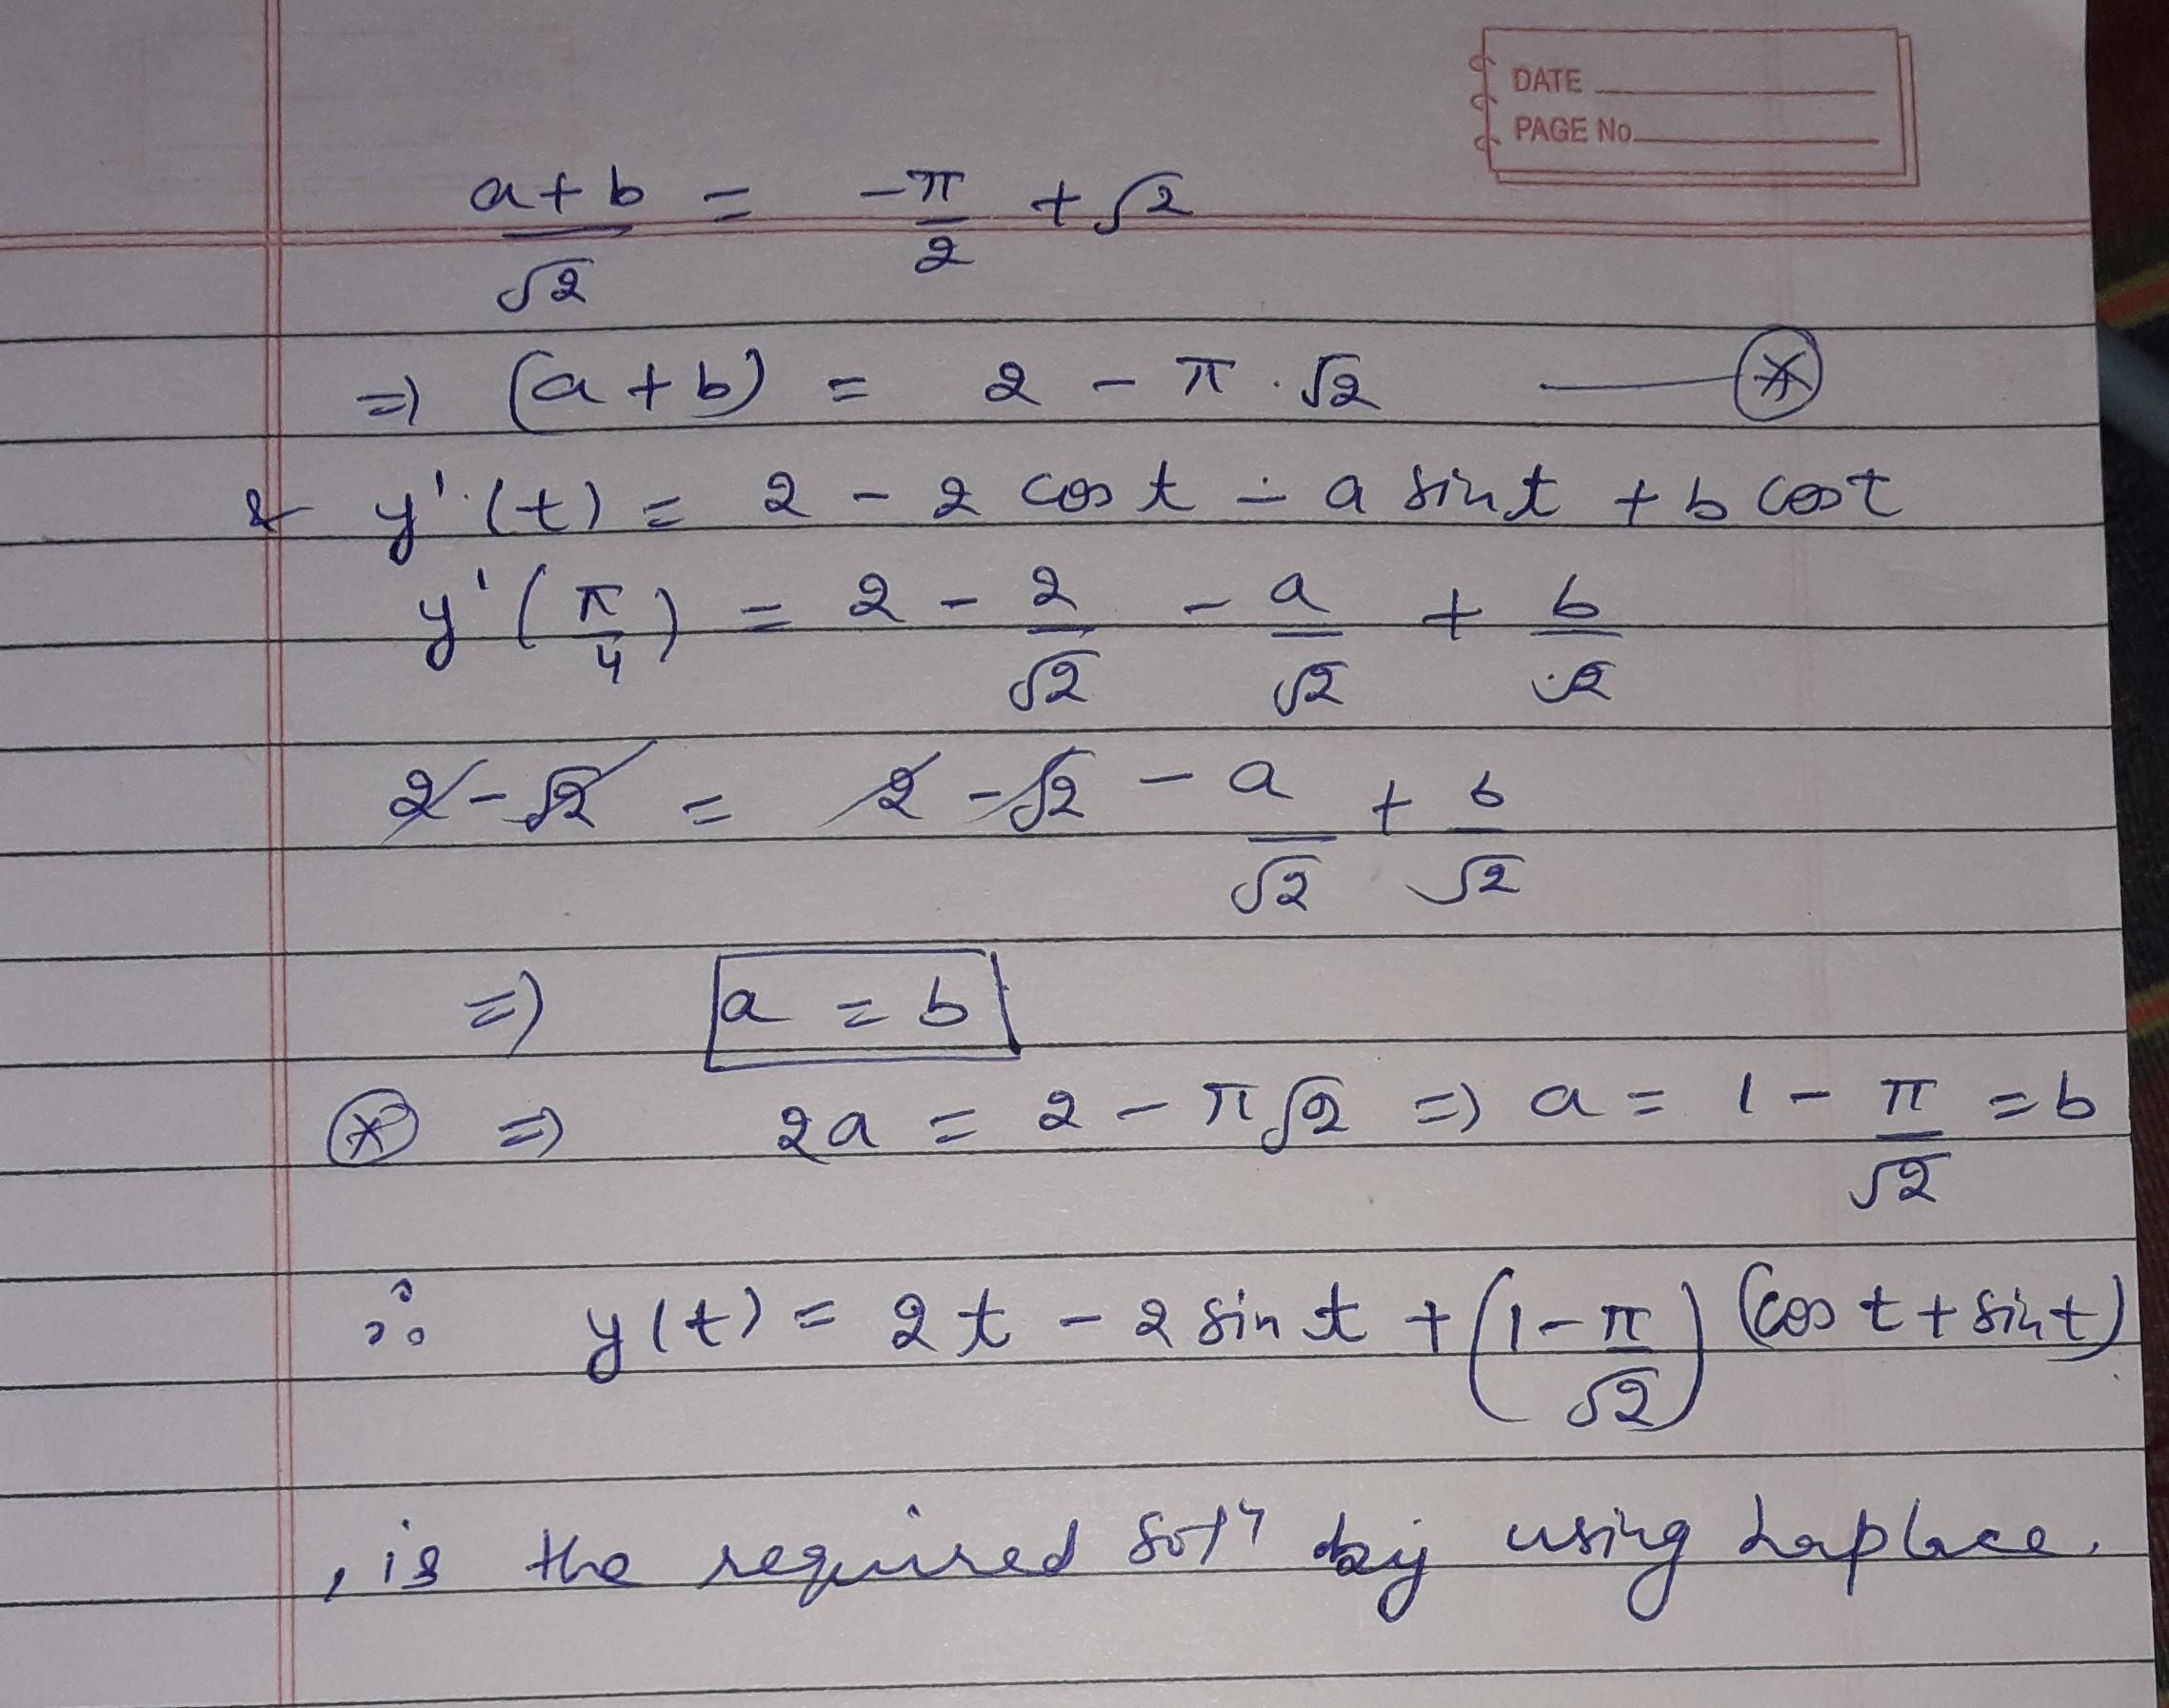 DATE
PAGE No.
(a+b)/√2 = -π/2 + √2
⇒ (a+b) = 2 - π.√2 —— ⊛
& y'(t) = 2 - 2 cos t - a sin t + b cos t
y'(π/4) = 2 - 2/√2 - a/√2 + b/√2
2 - √2 = 2 - √2 - a/√2 + b/√2
⇒ a = b
⊛ ⇒ 2a = 2 - π√2 ⇒ a = 1 - π/√2 = b
∴ y(t) = 2t - 2 sin t + (1 - π/√2) (cos t + sin t)
, is the required solⁿ by using Laplace.